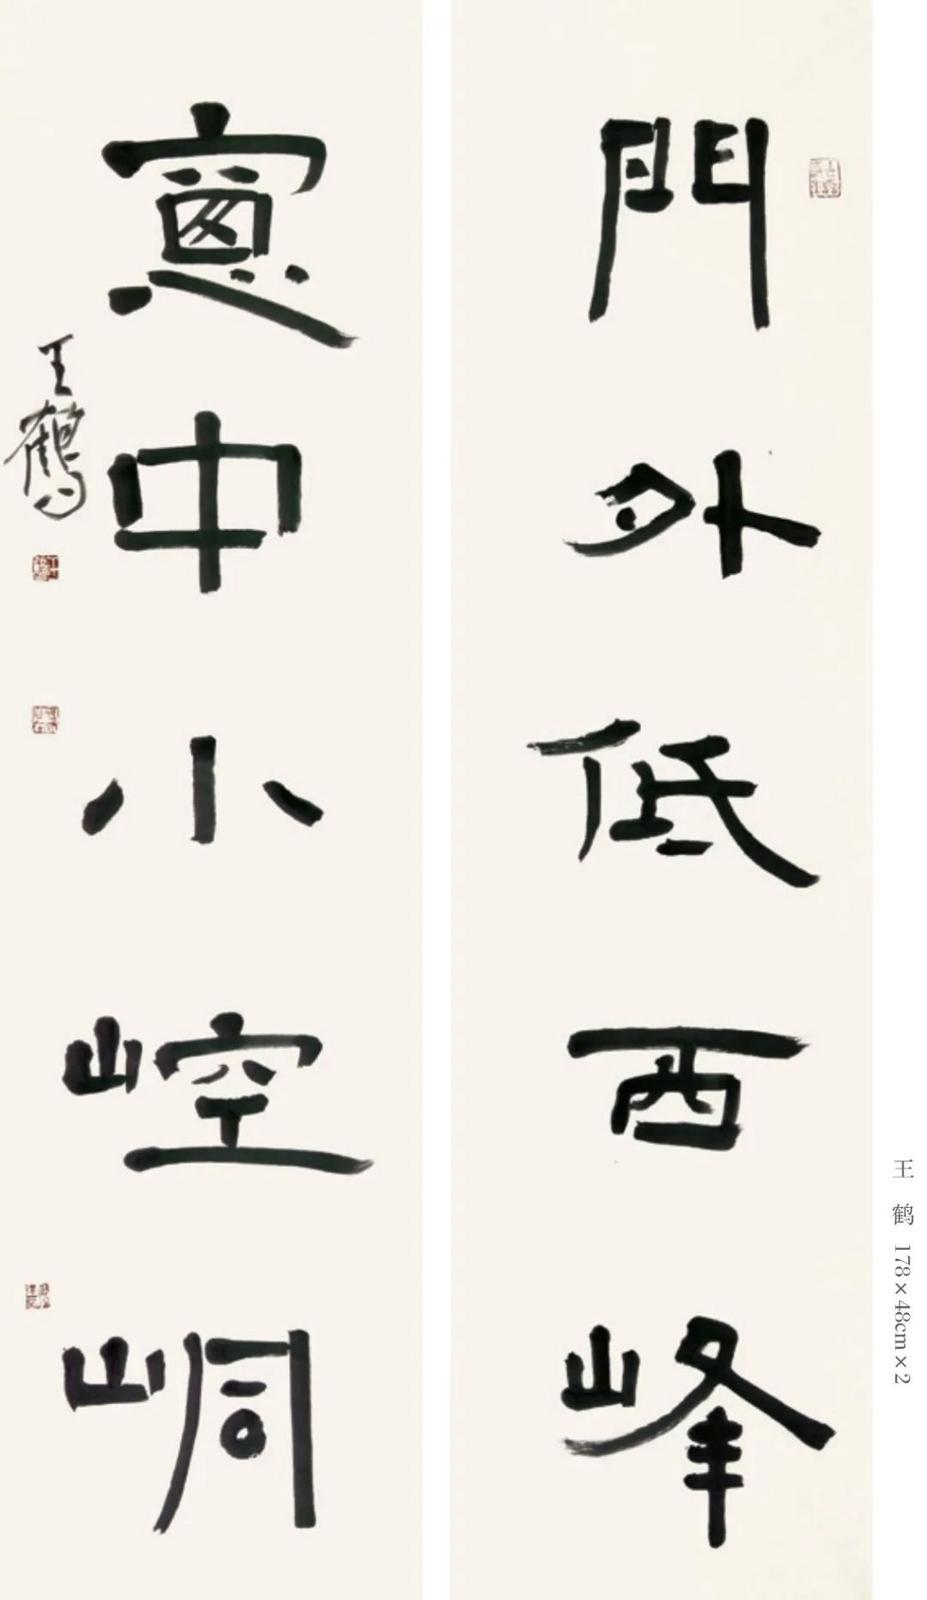 門外低西峰
窻中小崆峒
王鶴
王 鹤 178×48cm×2